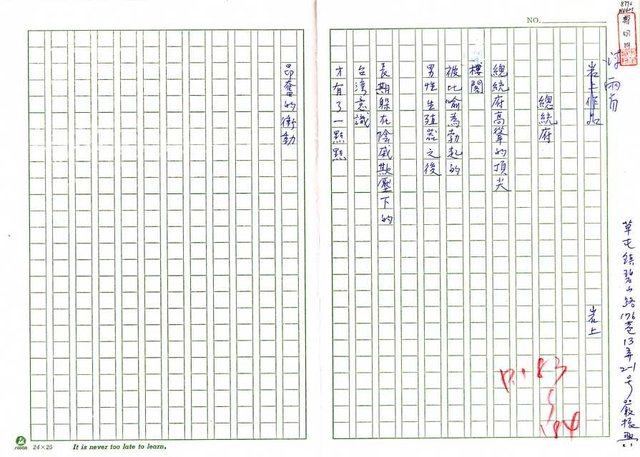 NO.
詩兩首
岩上作品
岩上
總統府
總統府高聳的頂尖
樓閣
被比喻為勃起的
男性生殖器之後
長期躲在陰威欺壓下的
台灣意識
才有了一點點
昂奮的衝動
草屯鎮碧山路176巷13弄2-1号嚴振興
P.83
84
24×25
It is never too late to learn.